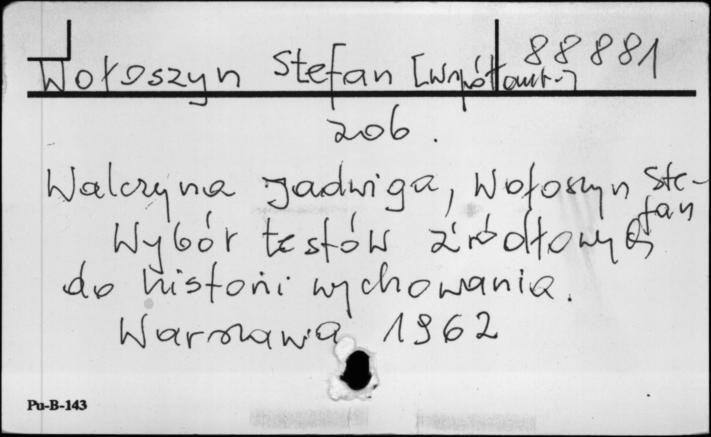 Wołoszyn Stefan [współaut.] 88881
206.
Walczyna Jadwiga, Wołoszyn Ste-
fan
Wybór testów źródłowych
do historii wychowania.
Warszawa 1962
Pu-B-143